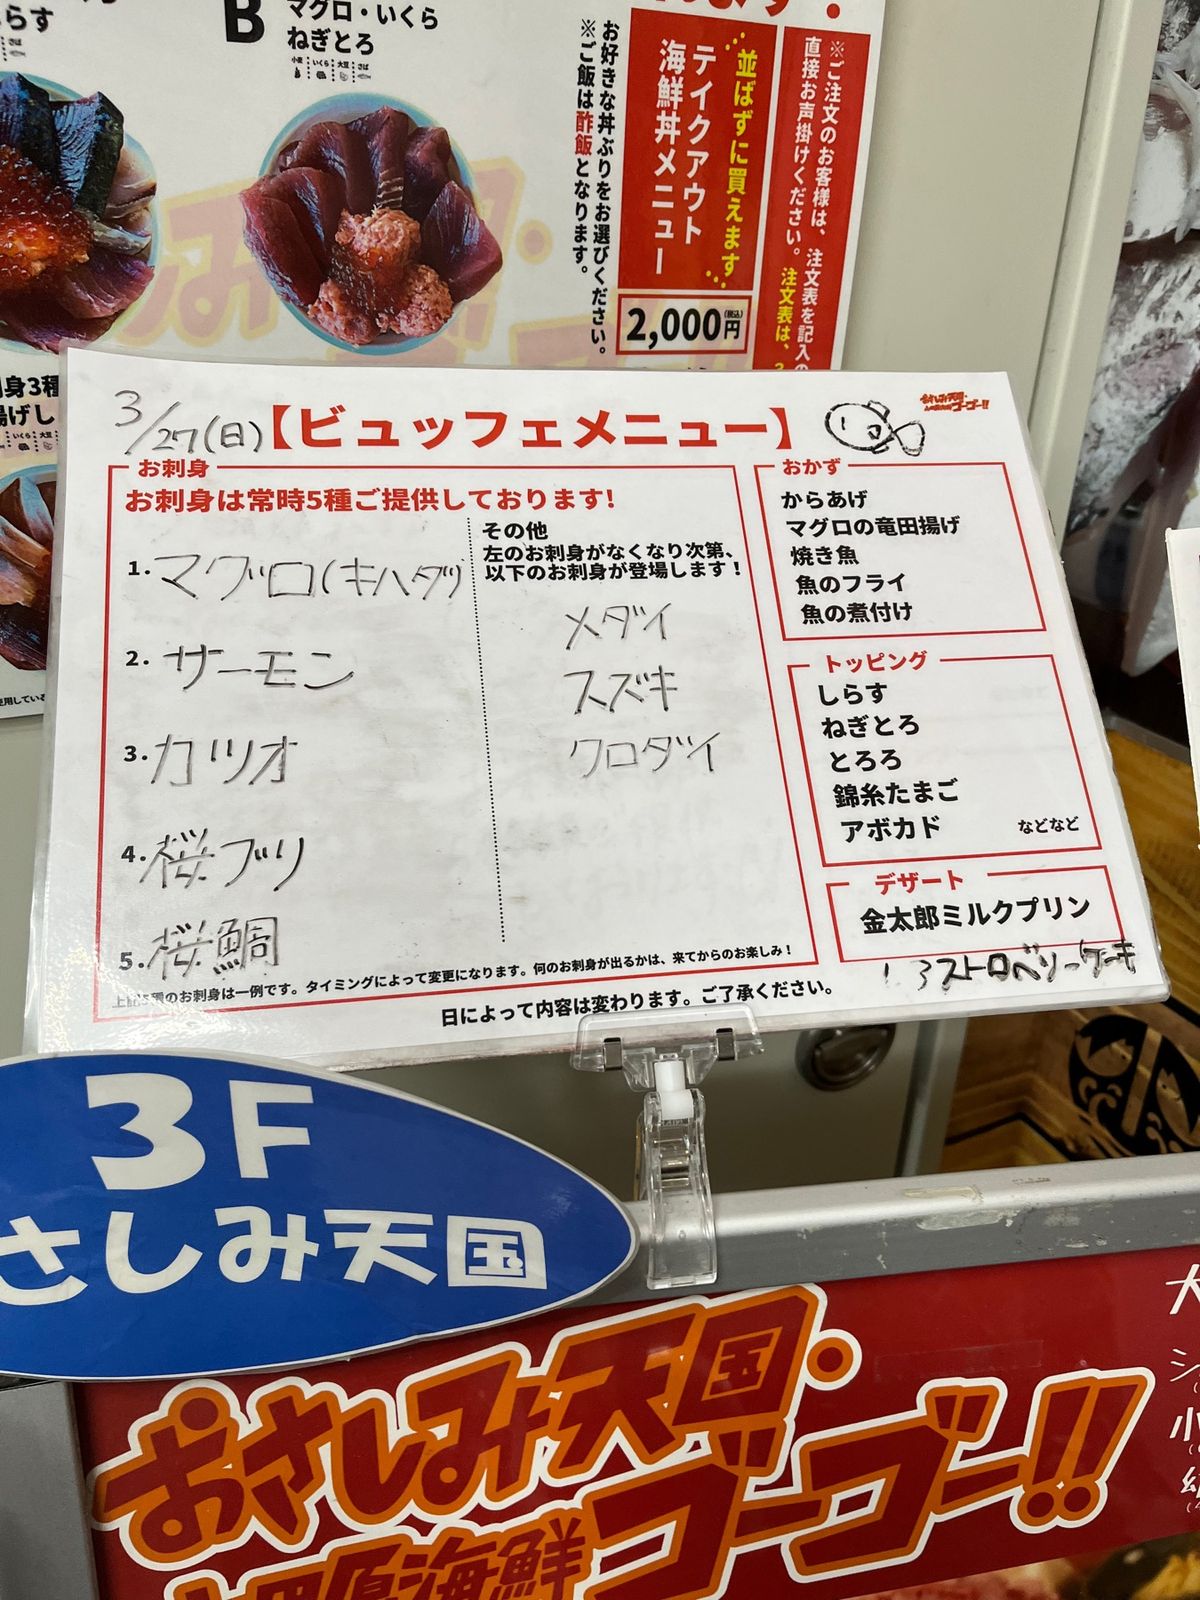 らす
B
マグロ・いくら
ねぎとろ
小麦 いくら 大豆 さば
お好きな丼ぶりをお選びください。
※ご飯は酢飯となります。
並ばずに買えます
テイクアウト
海鮮丼メニュー
2,000円(税込)
※ご注文のお客様は、注文表を記入の
直接お声掛けください。注文表は、
身3種
揚げし
3/27(日)【ビュッフェメニュー】
おさしみ天国・
ゴーゴー!!
お刺身
お刺身は常時5種ご提供しております!
1.マグロ(キハダ)
2.サーモン
3.カツオ
4.桜ブリ
5.桜鯛
その他
左のお刺身がなくなり次第、
以下のお刺身が登場します!
メダイ
スズキ
クロダイ
上記5種のお刺身は一例です。タイミングによって変更になります。何のお刺身が出るかは、来てからのお楽しみ!
日によって内容は変わります。ご了承ください。
おかず
からあげ
マグロの竜田揚げ
焼き魚
魚のフライ
魚の煮付け
トッピング
しらす
ねぎとろ
とろろ
錦糸たまご
アボカド などなど
デザート
金太郎ミルクプリン
ストロベリーケーキ
3F
さしみ天国
おさしみ天国・
小田原海鮮ゴーゴー!!